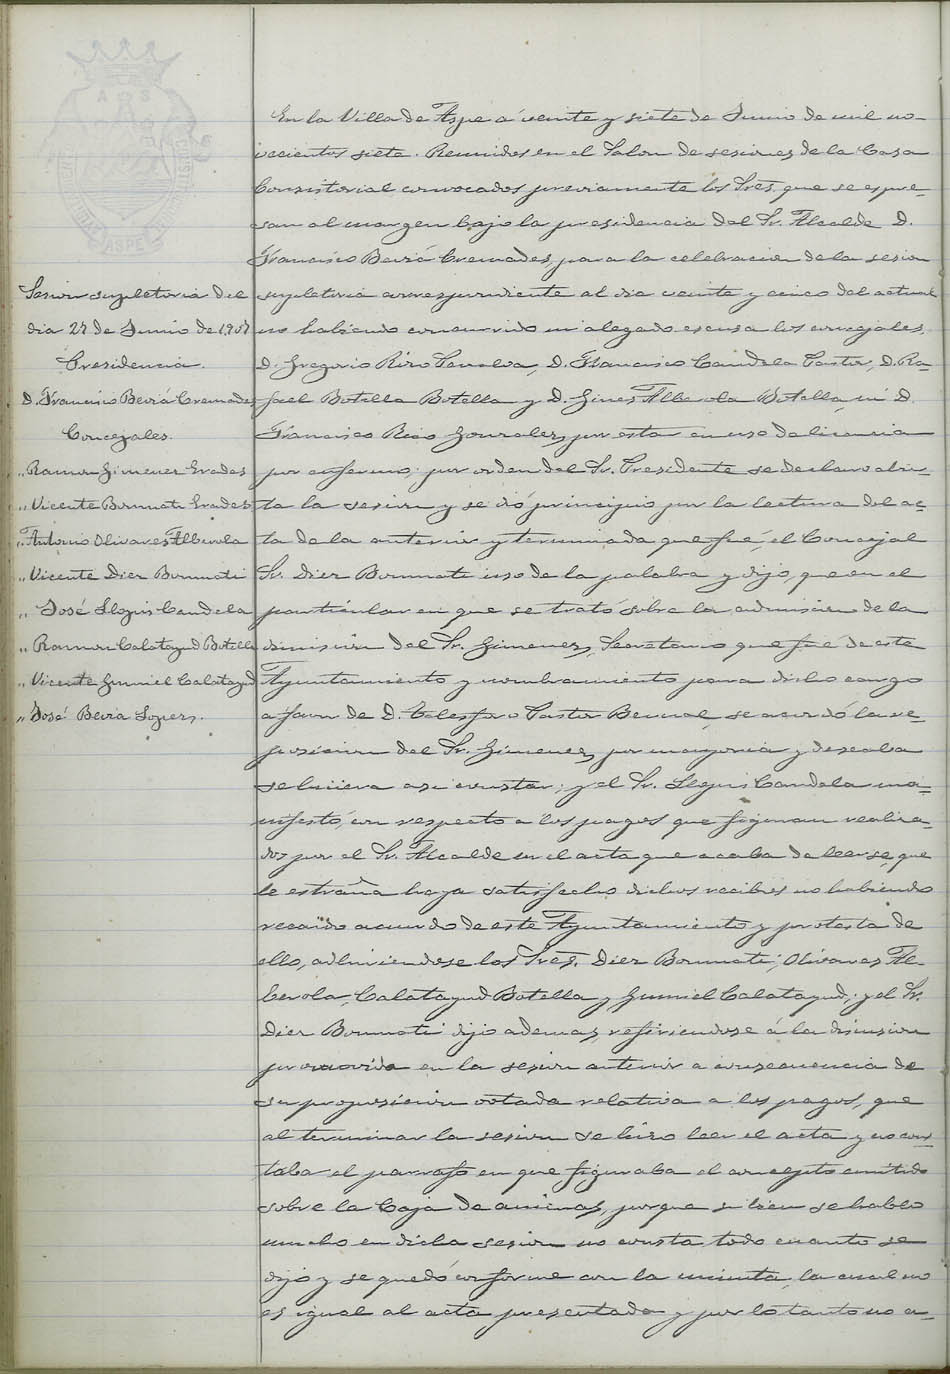 Sesion supletoria del
dia 27 de Junio de 1907
Presidencia.
D. Francisco Beviá Cremades
Concejales.
" Ramon Gimenez Erades
" Vicente Bonmati Erades
" Antonio Olivares Alberola
" Vicente Diez Bonmati
" José Llopis Candela
" Ramon Calatayud Botella
" Vicente Gumiel Calatayud
" José Beviá Lopez.
En la Villa de Aspe á veinte y siete de Junio de mil no-
vecientos siete. Reunidos en el Salon de sesiones de la Casa
Consistorial convocados previamente los Sres. que se espre-
san al margen bajo la presidencia del Sr. Alcalde D.
Francisco Beviá Cremades, para la celebracion de la sesion
supletoria correspondiente al dia veinte y cinco del actual
no habiendo concurrido ni alegado escusa los concejales,
D. Gregorio Rizo Penalva, D. Francisco Candela Pastor, D. Ra-
fael Botella Botella y D. Gines Alberola Botella, ni D.
Francisco Rico Gonzalez, por estar en uso de licencia
por enfermo; por orden del Sr. Presidente se declaro abier-
ta la sesion y se dió principio por la lectura del ac-
ta de la anterior y terminada que fué, el Concejal
Sr. Diez Bonmati uso de la palabra y dijo, que en el
particular en que se trató sobre la admision de la
dimision del Sr. Gimenez, Secretario que fue de este
Ayuntamiento y nombramiento para dicho cargo
a favor de D. Telesforo Pastor Bernal, se acordó la re-
posicion del Sr. Gimenez, por mayoria y deseaba
se hiciera asi constar; y el Sr. Llopis Candela ma-
nifestó, con respecto a los pagos que figuran realiza-
dos por el Sr. Alcalde en el acta que acaba de leerse, que
le estraña haya satisfecho dichos recibos no habiendo
recaido acuerdo de este Ayuntamiento y protesta de
ello, adhiriendose los Sres. Diez Bonmati, Olivares Al-
berola, Calatayud Botella y Gumiel Calatayud; y el Sr.
Diez Bonmati dijo ademas, refiriendose á la discusion
promovida en la sesion anterior a consecuencia de
su proposicion votada relativa a los pagos, que
al terminar la sesion se hizo leer el acta y no cons-
taba el parrafo en que figuraba el concepto emitido
sobre la Caja de animas, porque si bien se hablo
mucho en dicha sesion no consta todo cuanto se
dijo y se quedó conforme con la minuta, la cual no
es igual al acta presentada y por lo tanto no a-